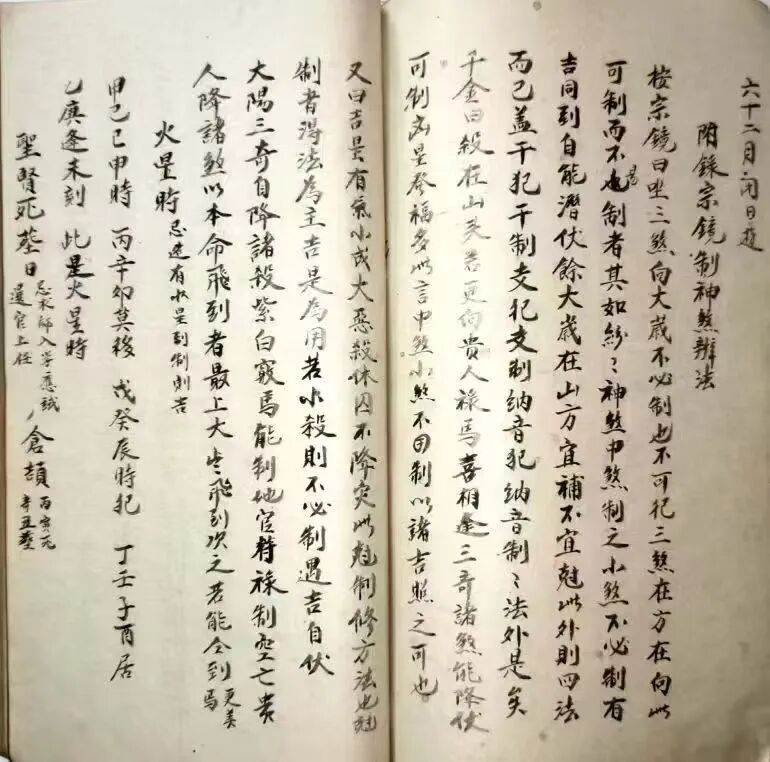 六十二月闭日遊
附錄宗鏡制神煞辨法
按宗鏡曰坐三煞向大歲不必制也不可犯三煞在方在向此
可制而不是也制者其如紛〻神煞中煞制之小煞不必制有
吉同到自能潛伏餘大歲在山方宜補不宜尅此外則四法
而已蓋干犯干制支犯支制納音犯納音制〻法外是矣
千金曰殺在山頭若更向貴人祿馬喜相逢三奇諸煞能降伏
可制凶星發福多此言中煞小煞不用制以諸吉照之可也
又曰吉星有氣小成大惡殺休囚不降灾此尅制修方法也尅
制者得法為主吉星為用若小殺則不必制遇吉自伏
大陽三奇自降諸殺紫白竅馬能制地官符祿制空亡貴
人降諸煞以本命飛到者最上大歲飛到次之若能仝到更美
馬
火星時 忌造有水星到制則吉
甲己巳申時 丙辛卯莫移 戊癸辰時犯 丁壬子酉居
乙庚逢未刻 此是火星時
聖賢死塟日 忌求師入学應試
選官上任 倉頡 丙寅死
辛丑塟